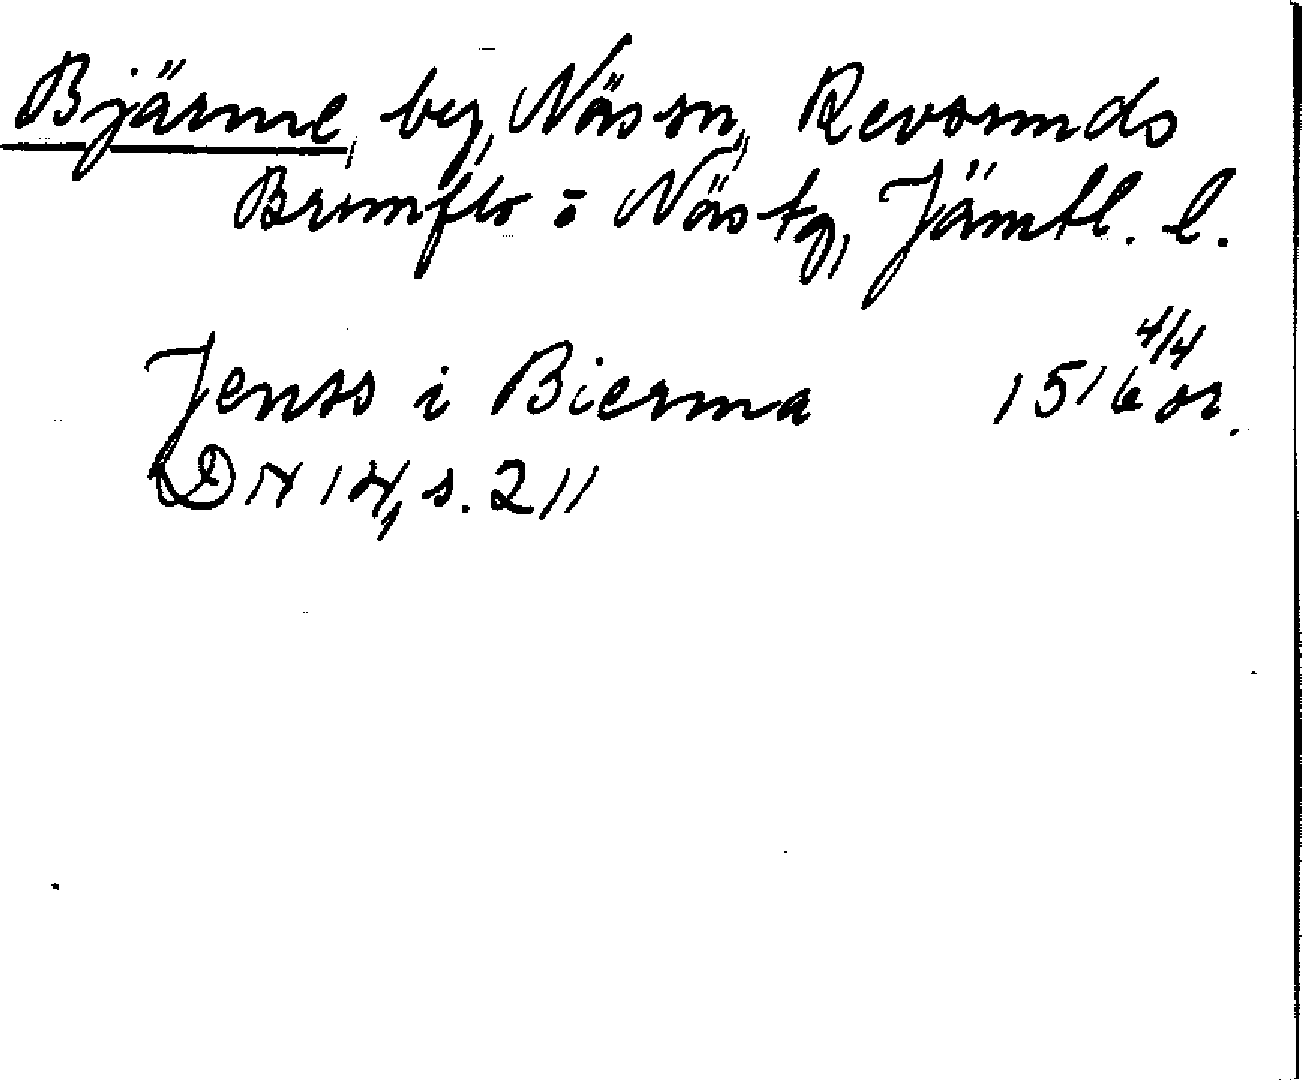 Bjärme, by, Näs sn, Revsunds
Brunflo o Näs tg, Jämtl. l.
Jenss i Bierma 1516 4/4 or.
DN 14, s. 211